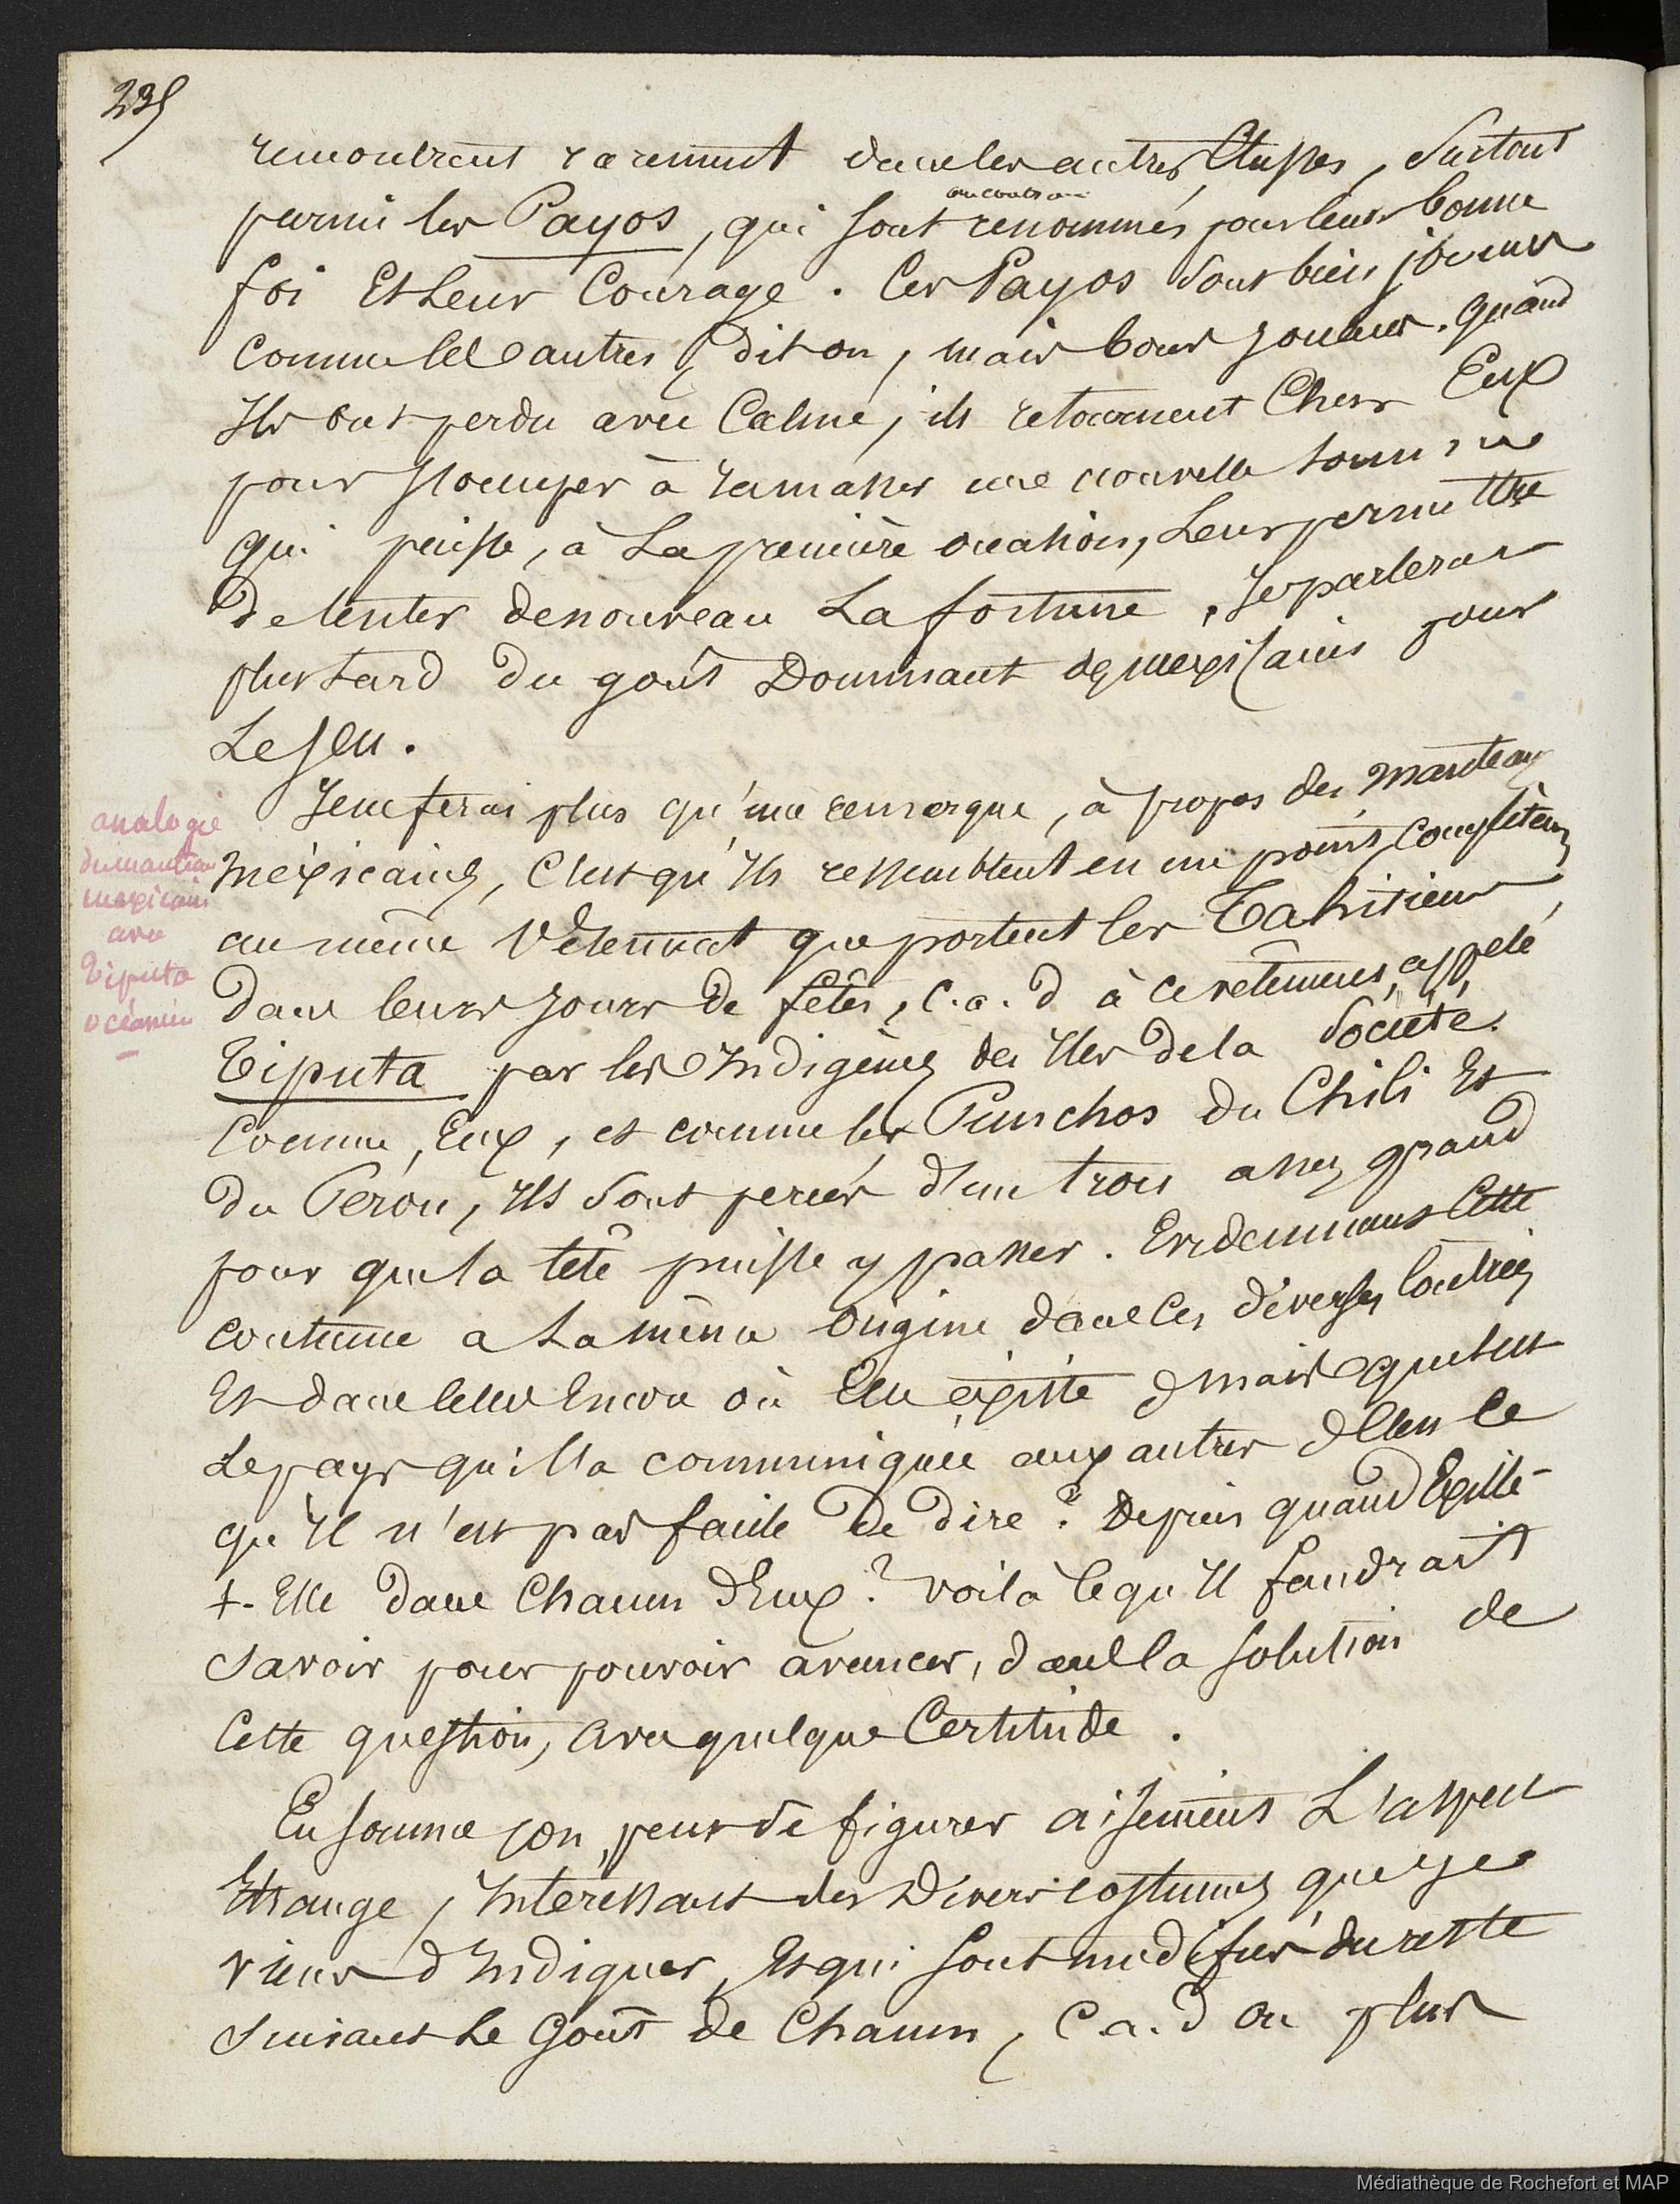 235
rencontrent rarement dans les autres Classes, Surtout
au contraire
parmi les Payos, qui sont renommés pour leur bonne
foi Et leur Courage. Ces Payos sont bien joueurs
comme les autres, dit on, mais bons joueurs. quand
Ils ont perdu avec Calme, ils retournent Chez Eux
pour s'occuper à ramasser une nouvelle somme
qui puisse, à La première occasion, Leur permettre
De tenter de nouveau La fortune. Je parlerai
plus tard du goût Dominant des mexicains pour
Le Jeu.
Je ne ferai plus qu'une remarque, à propos des manteaux
méxicains, C'est qu'Ils ressemblent en un point, complètement
au même Vêtement que portent les Tahitiens,
Dans leurs jours de fêtes, c.a.d à ce vêtement, appelé
Tiputa par les Indigènes des Iles de la Société.
Comme Eux, et comme les Punchos du Chili Et
du Perou, Ils sont percés d'un trou assez grand
pour que la tête puisse y passer. Evidemment Cette
coutume a La même Origine dans les diverses Contrées
Et dans celles Encore où Elle existe, mais quel est
Le pays qui l'a communiquée aux autres, C'est ce
qu'Il n'est pas facile de dire? Depuis quand Existe-
t-Elle dans Chacun d'Eux? voilà ce qu'Il faudrait
savoir pour pouvoir avancer, dans la solution de
Cette question, avec quelque Certitude.
En somme on peut se figurer aisement L'aspect
Etrange, Intéressant des Divers costumes que je
viens d'Indiquer, Et qui sont modifiés du reste
suivant Le Goût de Chacun, c.a.d ou plus
analogie
du manteau
mexicain
avec
Tiputa
océanien
Médiathèque de Rochefort et MAP